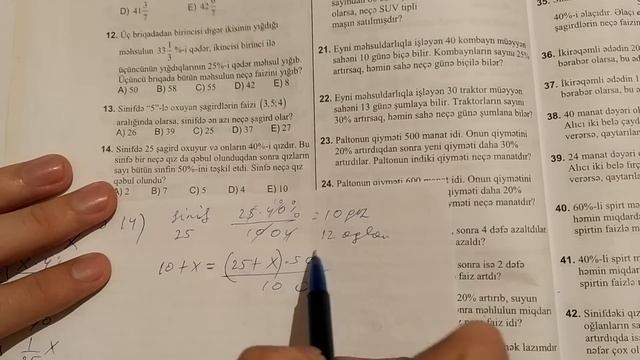 D) 41 3/7 E) 42
12. Üç briqadadan birincisi digər ikisinin yığdığı
məhsulun 33 1/3 %-i qədər, ikincisi birinci ilə
üçüncünün yığdıqlarının 25%-i qədər məhsul yığıb.
Üçüncü briqada bütün məhsulun neçə faizini yığıb?
A) 50 B) 58 C) 55 D) 42 E) 8
13. Sinifdə "5"-lə oxuyan şagirdlərin faizi (3,5;4)
aralığında olarsa, sinifdə ən azı neçə şagird olar?
A) 26 B) 39 C) 25 D) 37 E) 27
14. Sinifdə 25 şagird oxuyur və onların 40%-i qızdır. Bu
sinfə bir neçə qız da qəbul olunduqdan sonra qızların
sayı bütün sinfin 50%-ini təşkil etdi. Sinfə neçə qız
qəbul olundu?
A) 2 B) 7 C) 5 D) 4 E) 10
14) sinif 25·40% = 10 qız
25 100% 12 oğlan
10 + x = (25 + x)·5
10
1/25 x
olarsa, neçə SUV tipli
maşın satılmışdır?
21. Eyni məhsuldarlıqla işləyən 40 kombayn müəyyən
sahəni 10 günə biçə bilir. Kombaynların sayını 25%
artırsaq, həmin sahə neçə günə biçilə bilər?
22. Eyni məhsuldarlıqla işləyən 30 traktor müəyyən
sahəni 13 günə şumlaya bilir. Traktorların sayını
30% artırsaq, həmin sahə neçə günə şumlana bilər?
23. Paltonun qiyməti 500 manat idi. Onun qiymətini
20% artırdıqdan sonra yeni qiyməti daha 30%
artırdılar. Paltonun indiki qiyməti neçə manatdır?
24. Paltonun qiyməti 600 manat idi. Onun qiymətini
qiyməti daha 20%
neçə manatdır?
sonra 4 dəfə azaltdılar
azaldı?
sonra isə 2 dəfə
faiz artdı?
20% artırıb, suyun
məhlulun miqdarı
faiz idi?
35.
40%-i əlaçıdır. Əlaçı
şagirdlərin neçə faizin
36. İkirəqəmli ədədin 20
bərabər olarsa, bu əd
37. İkirəqəmli ədədin
bərabər olarsa, bu
38. 40 manat dəyəri o
Alıcı iki belə çayd
verərsə, qaytarılan
39. 24 manat dəyəri
Alıcı iki belə firç
verərsə, qaytarıla
40. 60%-li spirt mə
həmin miqdarda
spirtin faizlə m
41. 96%-li spirt m
həmin miqdar
spirtin faizlə
42. Sinifdəki qız
oğlanların sa
artırdıqda is
nəfər çox ol